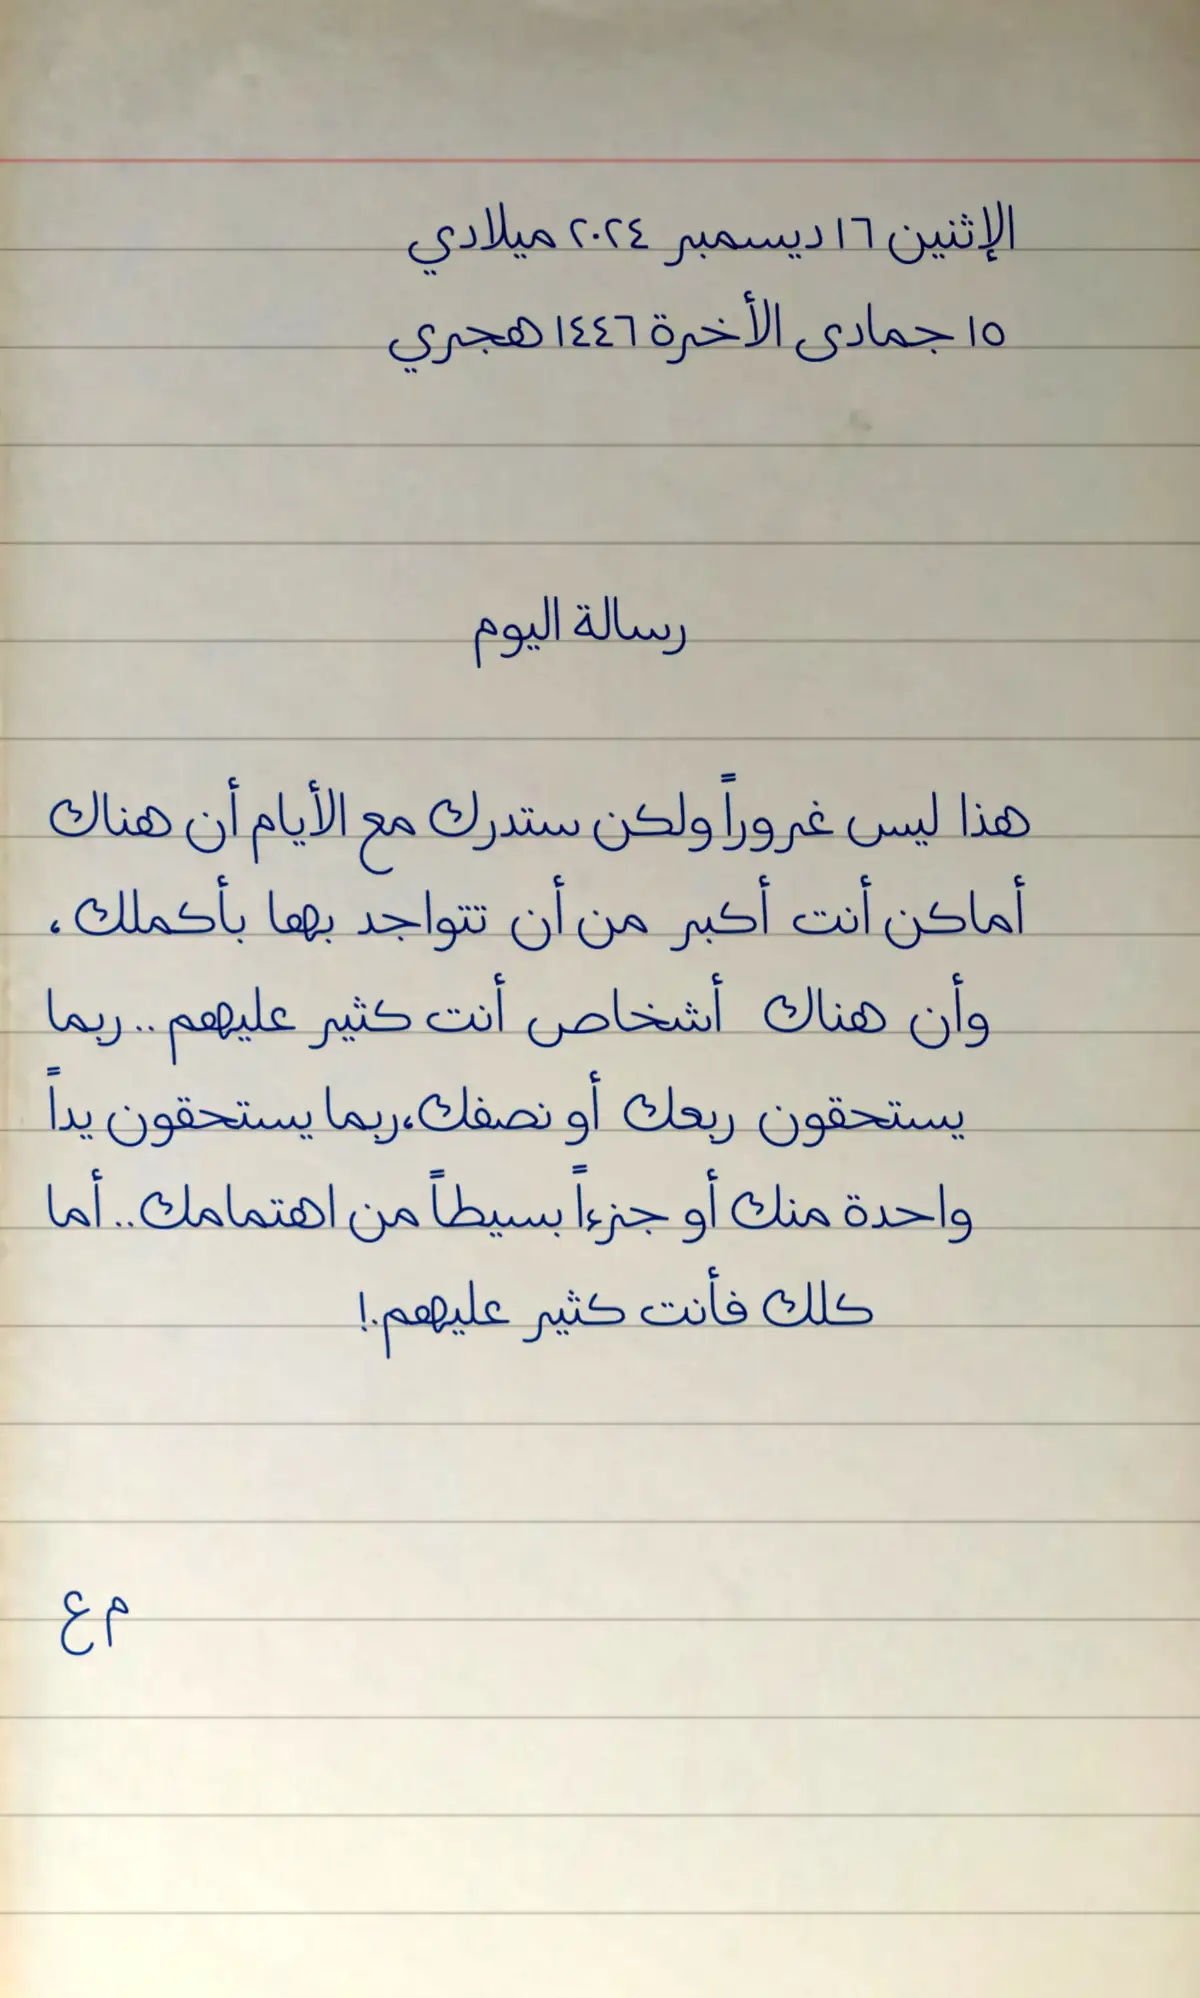 الإثنين ١٦ ديسمبر ٢٠٢٤ ميلادي
١٥ جمادى الأخرة ١٤٤٦ هجري
رسالة اليوم
هذا ليس غروراً ولكن ستدرك مع الأيام أن هناك
أماكن أنت أكبر من أن تتواجد بها بأكملك ،
وأن هناك أشخاص أنت كثير عليهم .. ربما
يستحقون ربعك أو نصفك،ربما يستحقون يداً
واحدة منك أو جزءاً بسيطاً من اهتمامك .. أما
كلك فأنت كثير عليهم.!
م ع